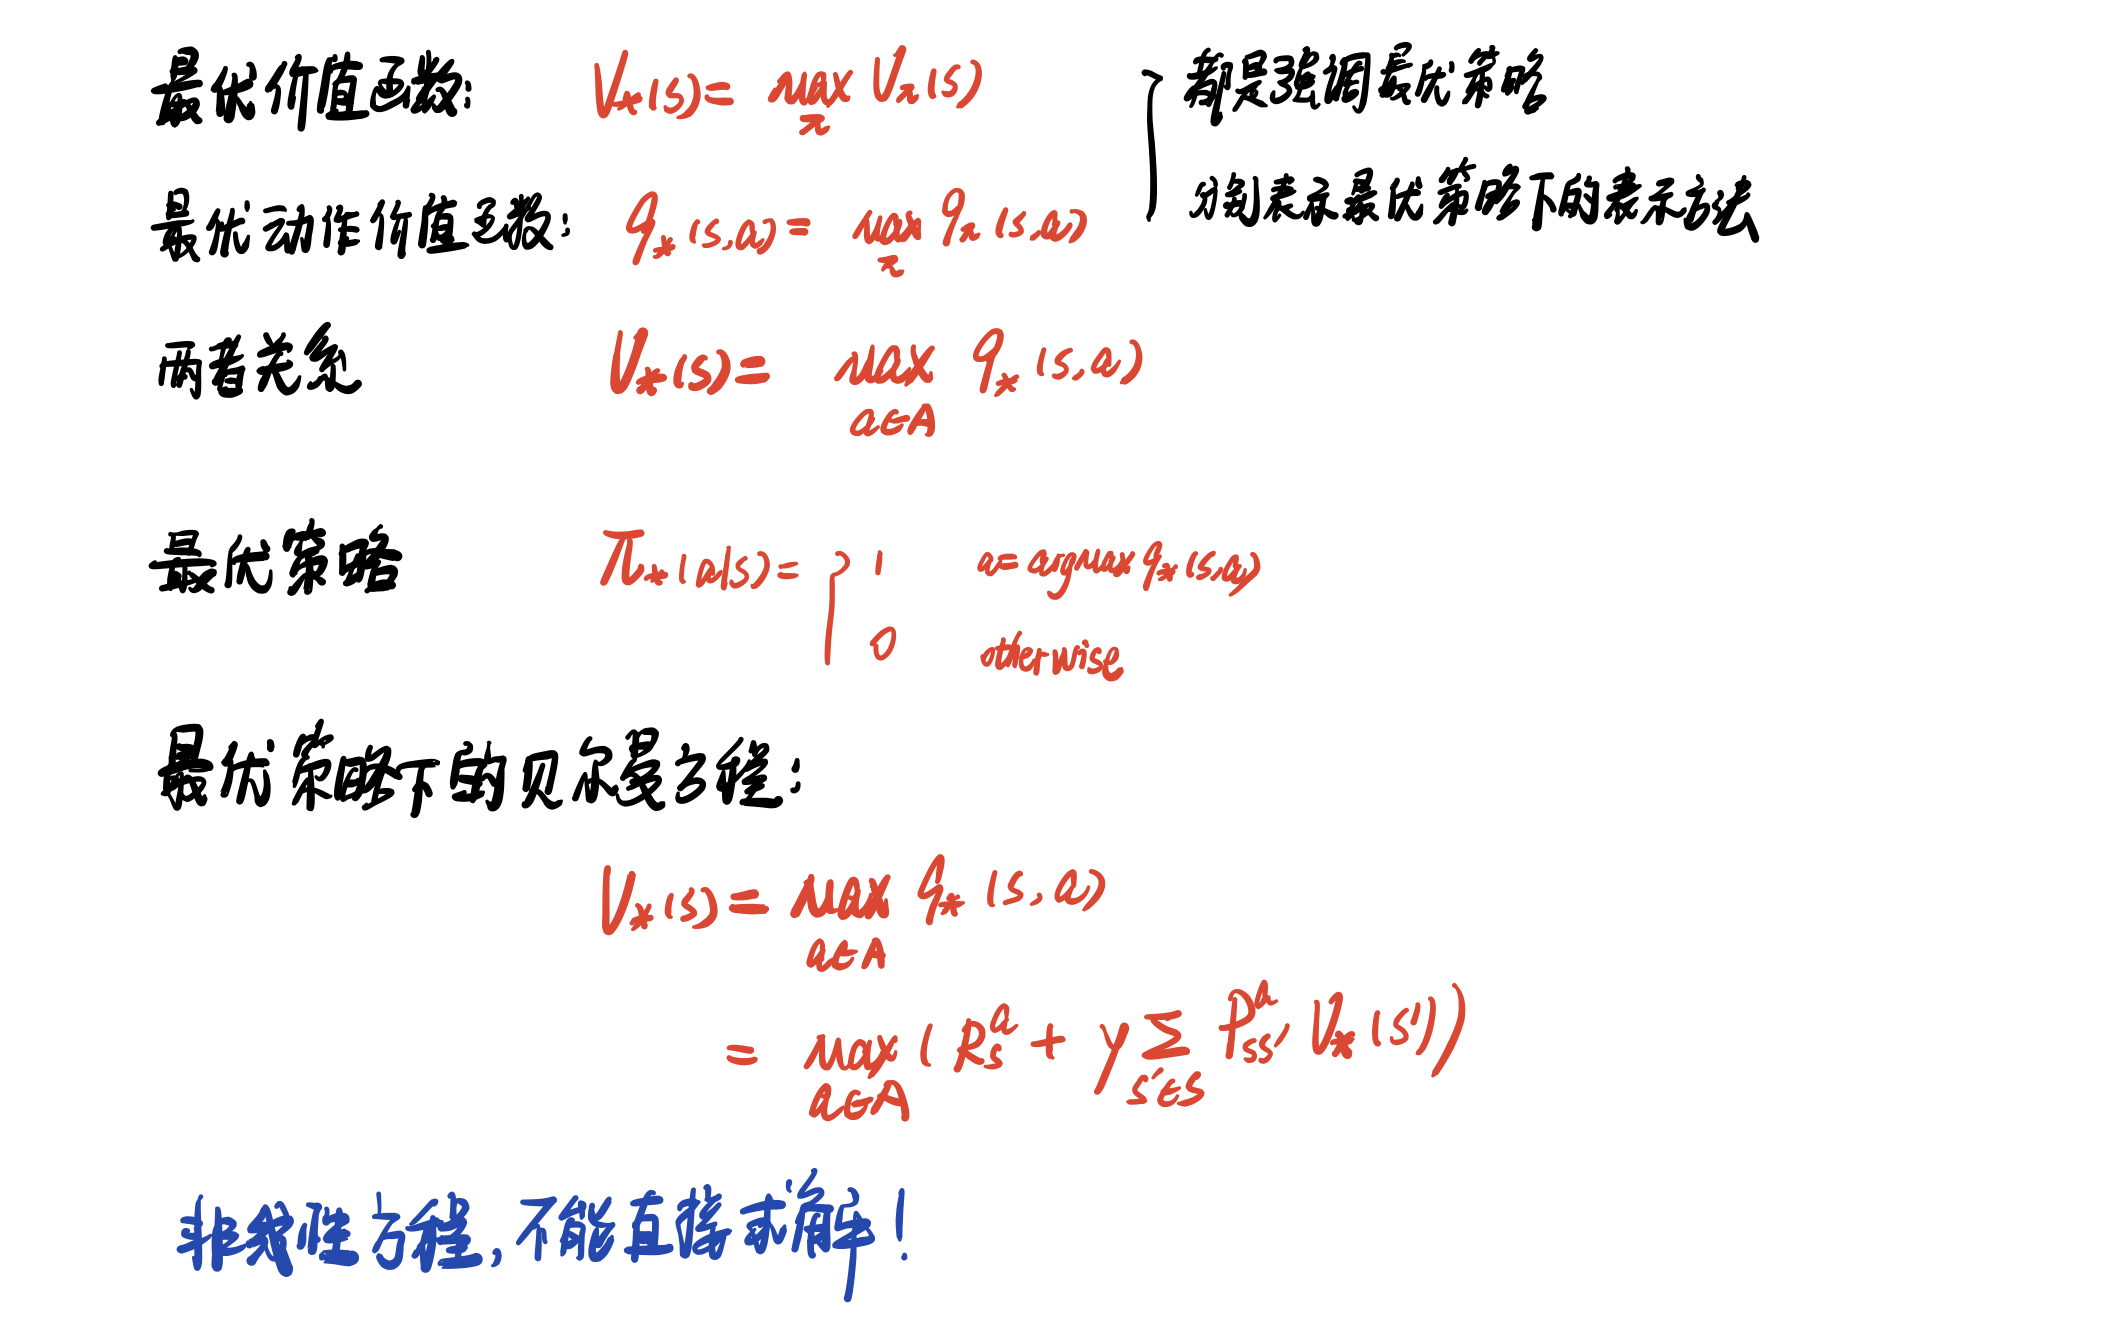 最优价值函数: V*(s) = max_π Vπ(s)
都是强调最优策略
最优动作价值函数: q*(s,a) = max_π qπ(s,a)
分别表示最优策略下的表示方法
两者关系 V*(s) = max_{a∈A} q*(s,a)
最优策略 π*(a|s) = { 1 a=argmax q*(s,a)
0 otherwise
最优策略下的贝尔曼方程:
V*(s) = max_{a∈A} q*(s,a)
= max_{a∈A} (R_s^a + γ Σ_{s'∈S} P_{ss'}^a V*(s'))
非线性方程,不能直接求解!